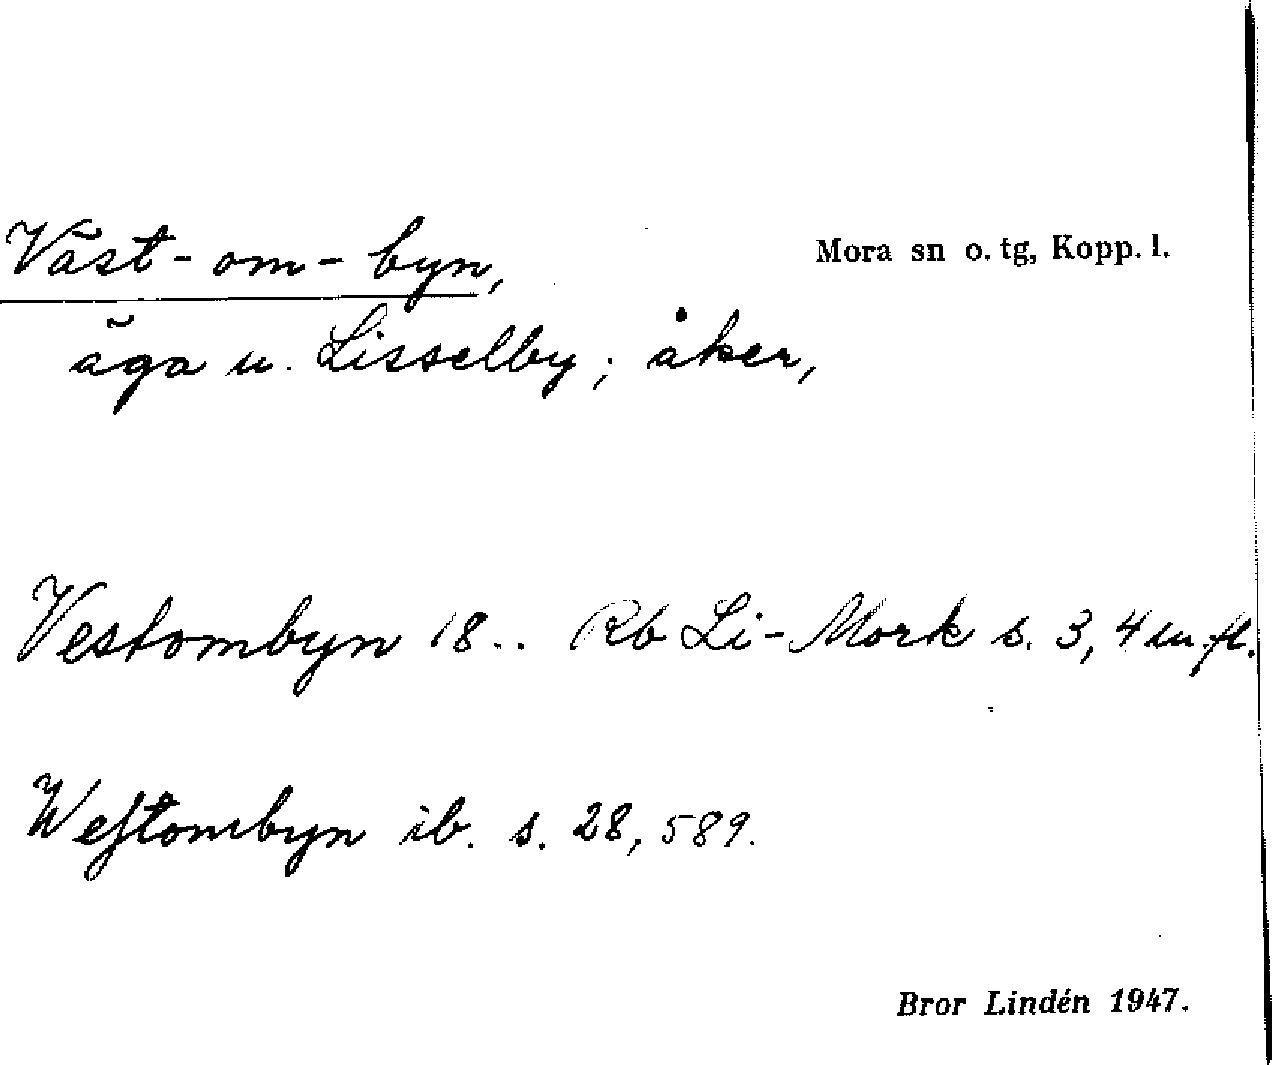 Väst-om-byn,
Mora sn o. tg, Kopp. l.
äga u. Lisselby; åker,
Vestombyn 18.. Rb Li-Mork s. 3, 4 m. fl.
Weſtombyn ib. s. 28, 589.
Bror Lindén 1947.